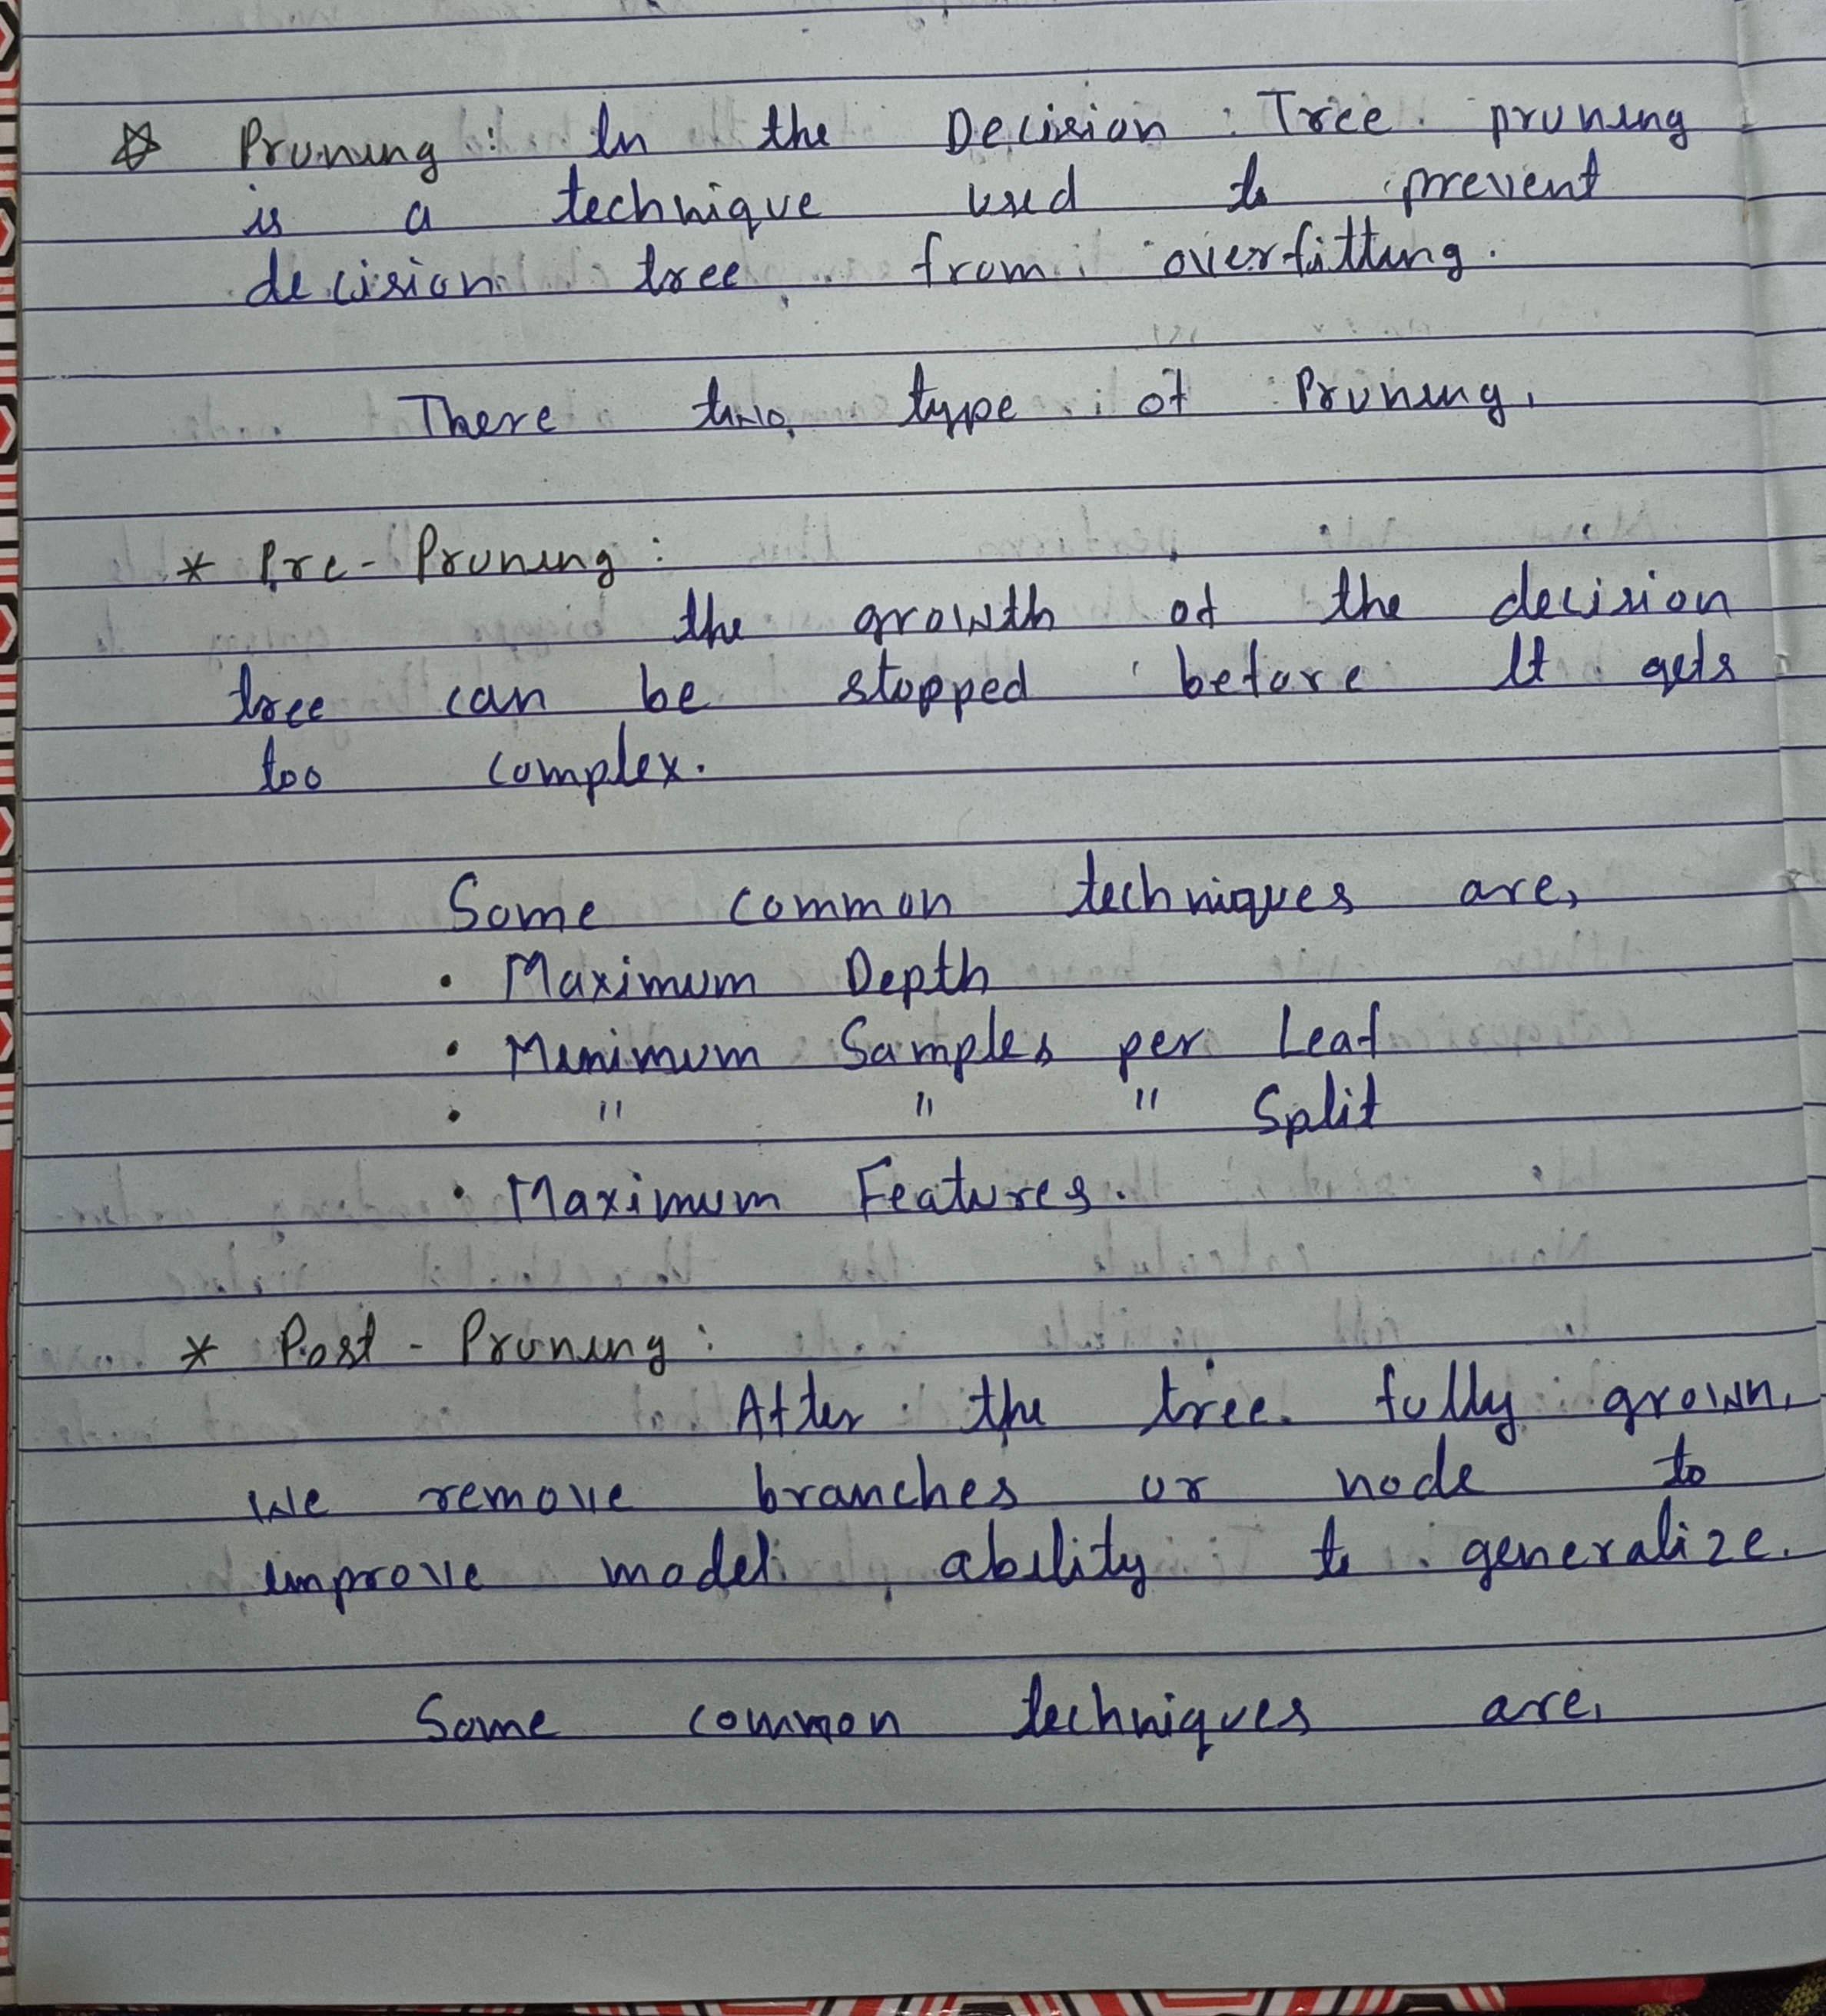 ☆ Pruning : In the Decision Tree pruning
is a technique used to prevent
decision tree from overfitting.
There two type of Pruning,
* Pre - Pruning :
the growth of the decision
tree can be stopped before It gets
too complex.
Some common techniques are,
• Maximum Depth
• Minimum Samples per Leaf
• " " " Split
• Maximum Features.
* Post - Pruning :
After the tree fully grown,
we remove branches or node to
improve model ability to generalize.
Some common techniques are,